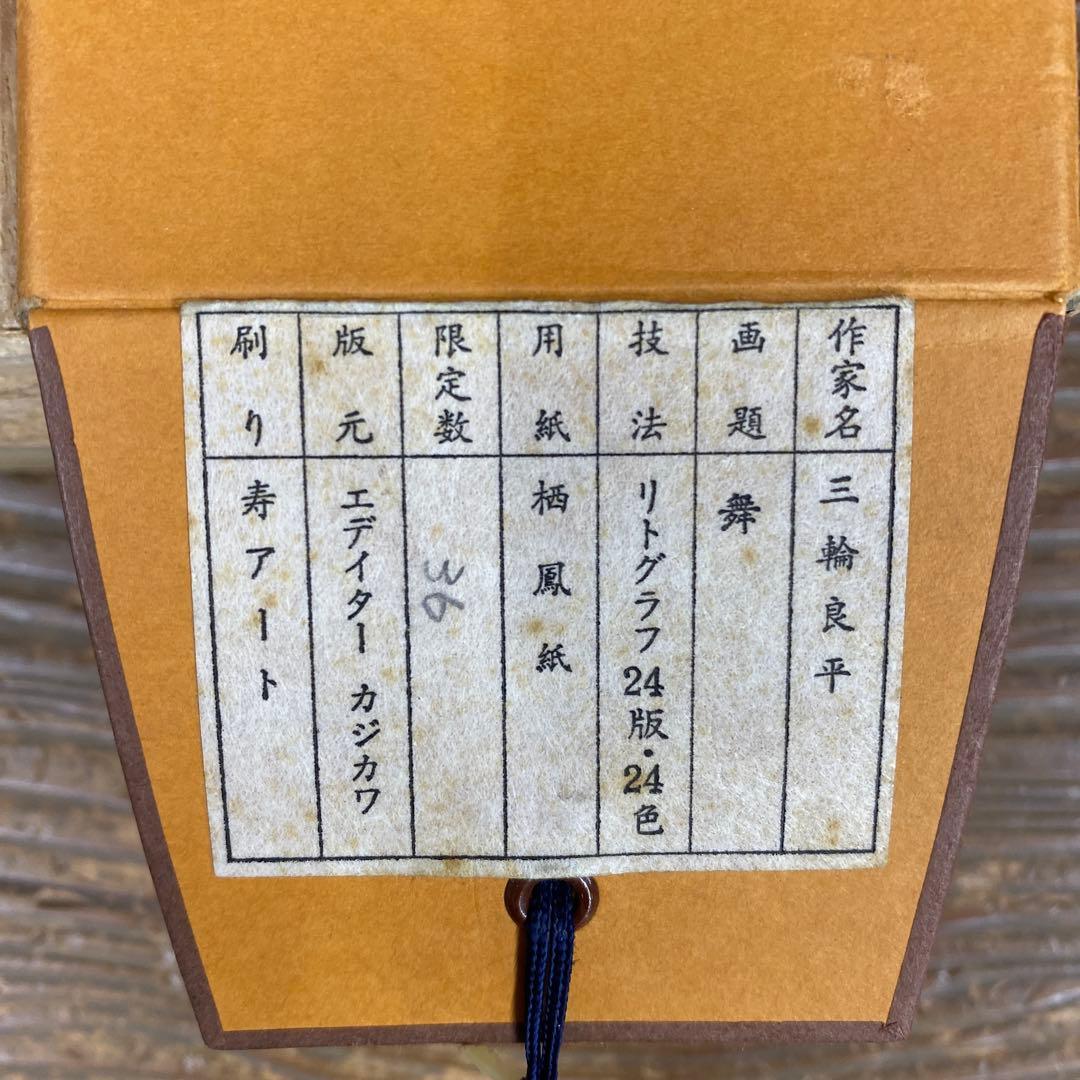 作家名 三輪良平
画題 舞
技法 リトグラフ24版・24色
用紙 栖鳳紙
限定数 36
版元 エディター カジカワ
刷り 寿アート